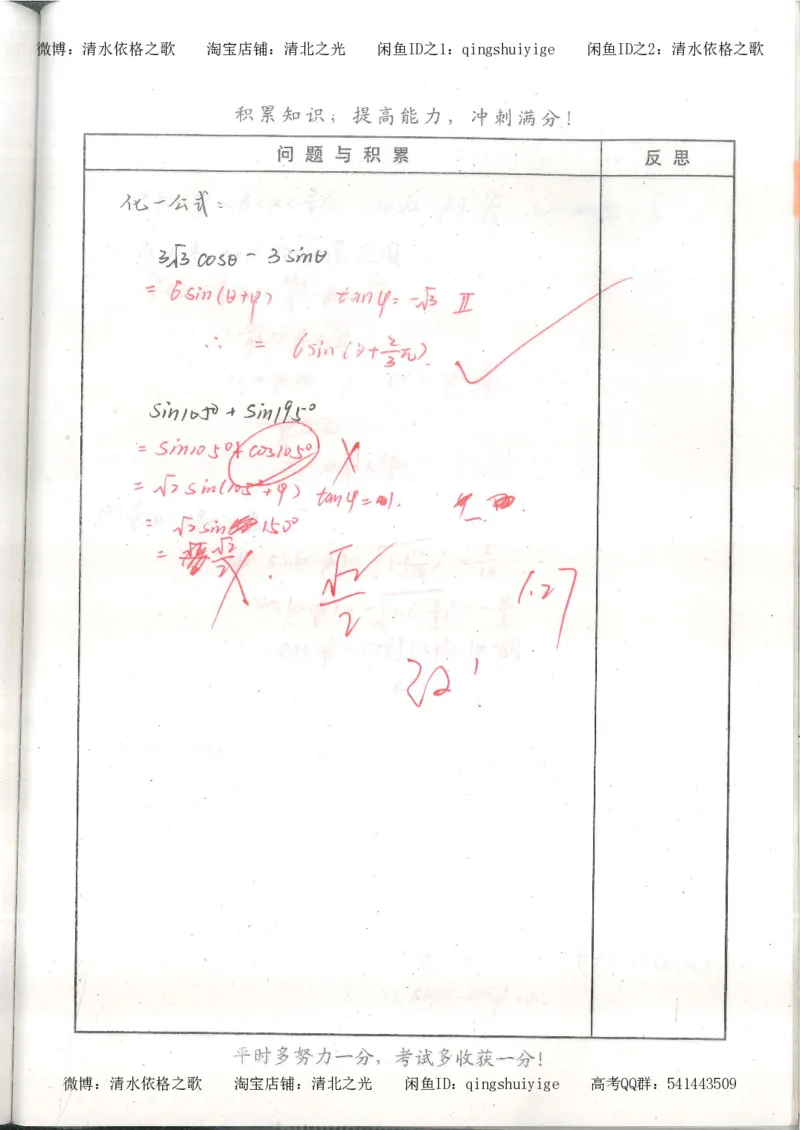 微博：清水依格之歌 淘宝店铺：清北之光 闲鱼ID之1：qingshuiyige 闲鱼ID之2：清水依格之歌
积累知识；提高能力，冲刺满分！
问题与积累 反思
化一公式：
3√3 cosθ - 3 sinθ
= 6sin(θ+φ) tanφ = -√3 Ⅱ
∴ = 6sin(θ+2/3π).
sin105°+sin195°
= sin105°+cos105°
= √2 sin(105°+φ) tanφ=1.
= √2 sin 150°
= √2/2
√2/2
1.27
平时多努力一分，考试多收获一分！
微博：清水依格之歌 淘宝店铺：清北之光 闲鱼ID：qingshuiyige 高考QQ群：541443509